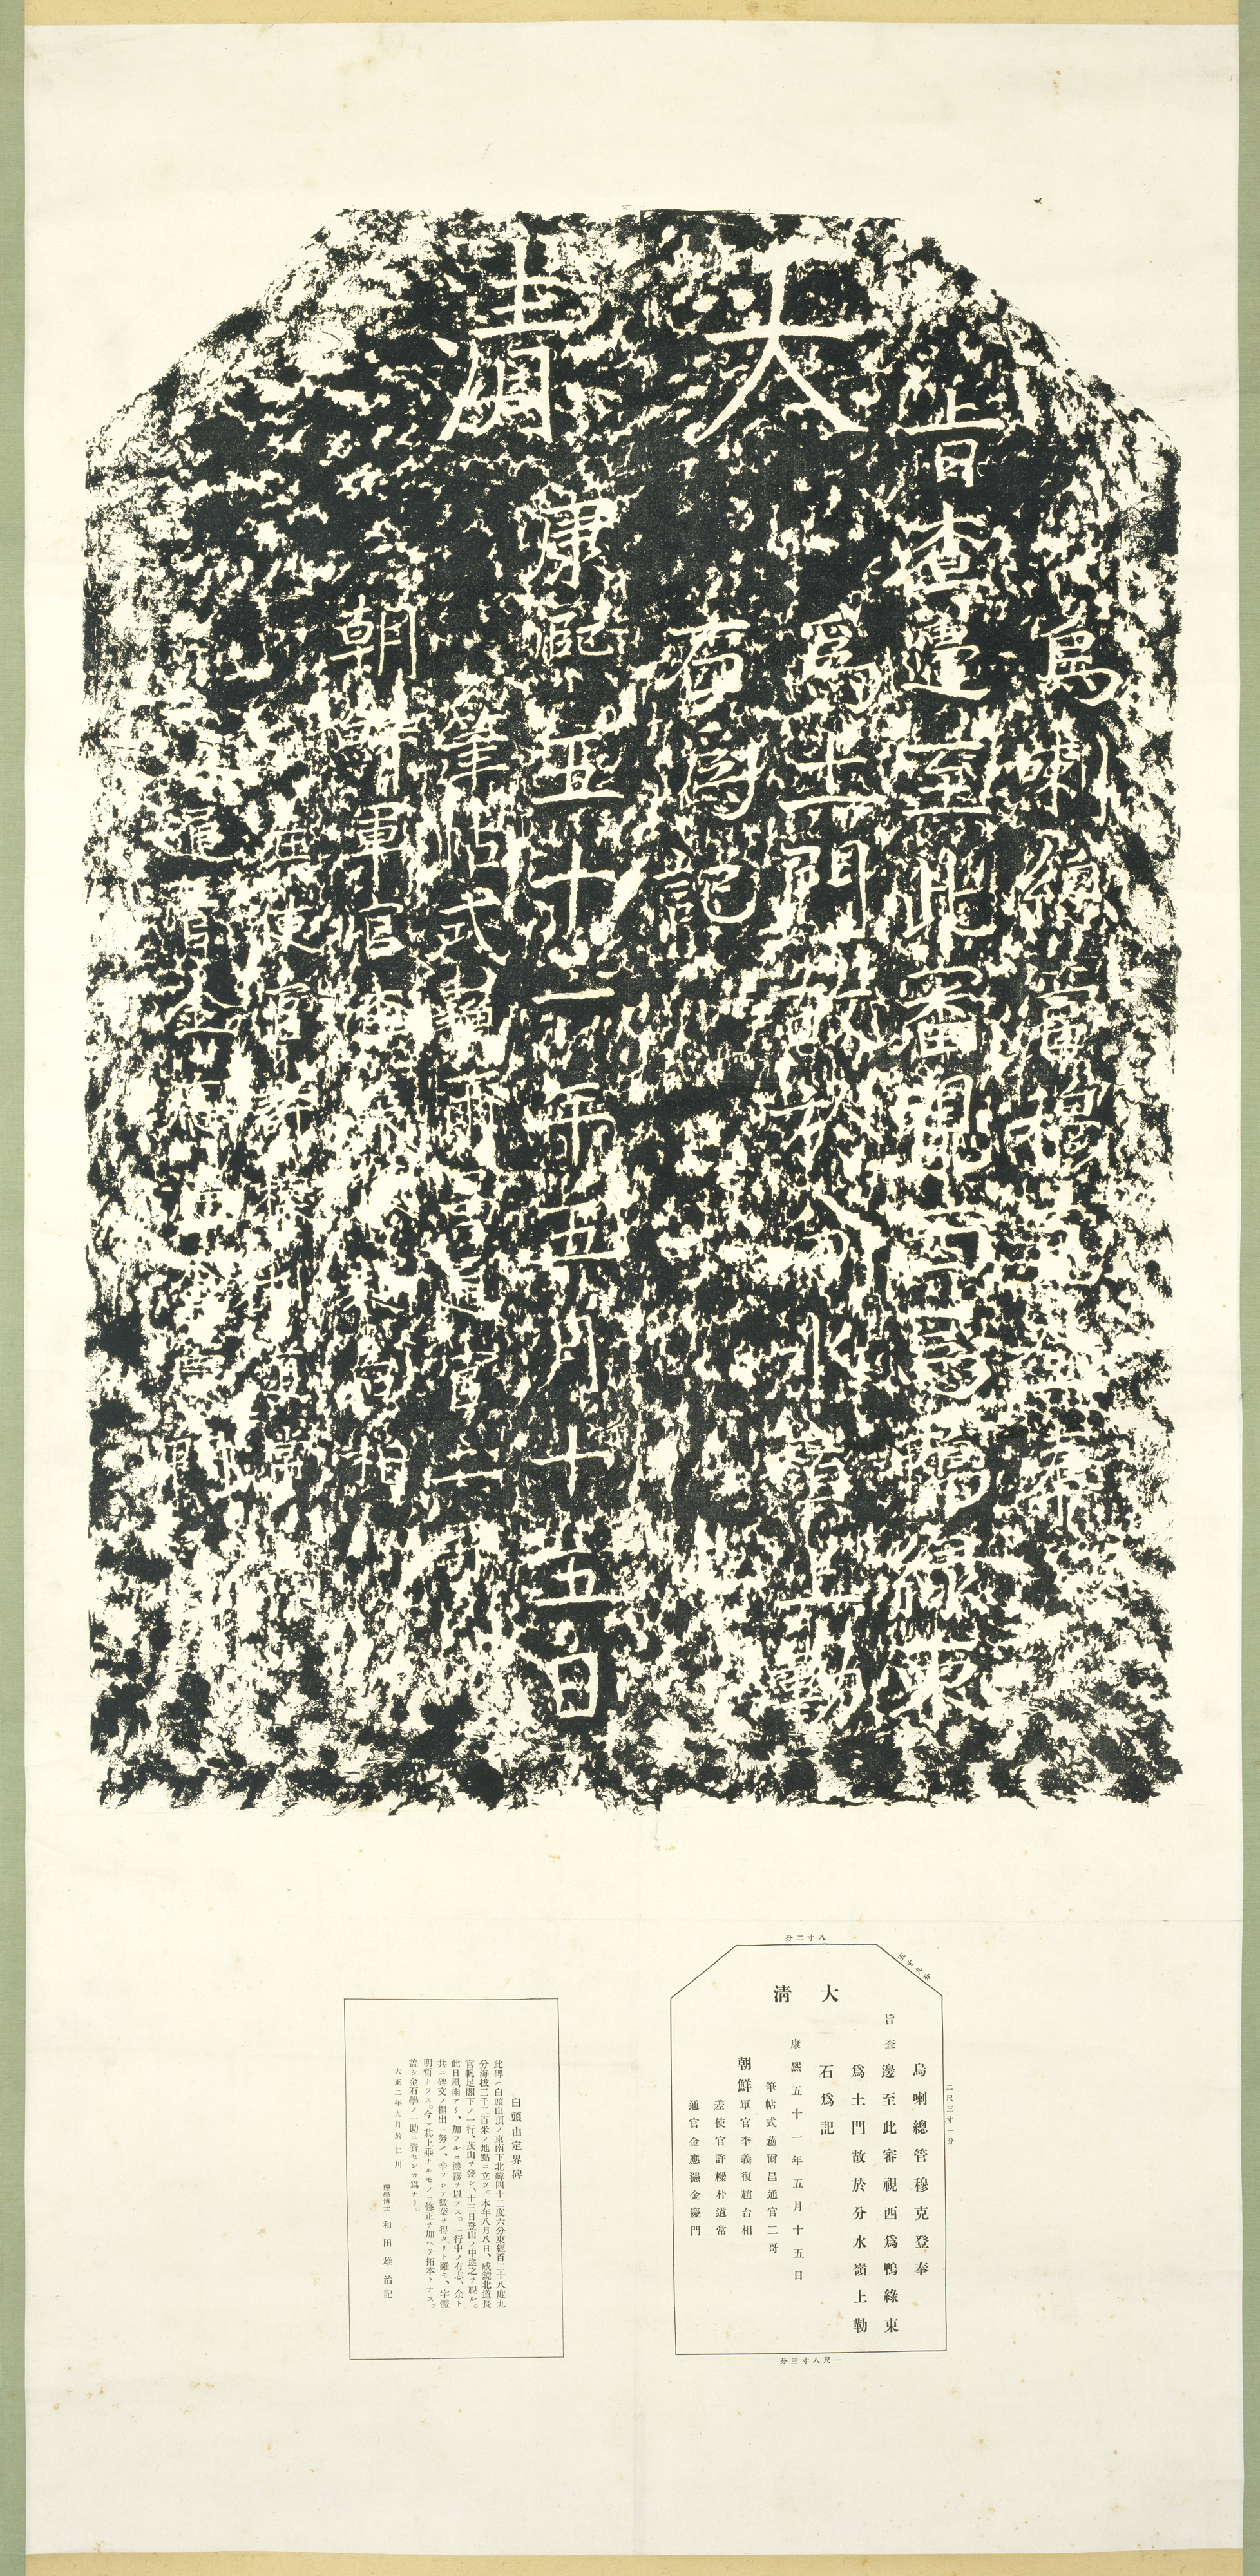 大
清
烏喇總管穆克登奉
旨查邊至此審視西爲鴨綠東
爲土門故於分水嶺上勒
石爲記
康熙五十一年五月十五日
筆帖式蘇爾昌通官二哥
朝鮮軍官李義復趙台相
差使官許樑朴道常
通官金應瀗金慶門
八寸二分
五寸九分
二尺三寸一分
一尺八寸三分
大
清
烏喇總管穆克登奉
旨査邊至此審視西爲鴨綠東
爲土門故於分水嶺上勒
石爲記
康熙五十一年五月十五日
筆帖式蘓爾昌通官二哥
朝鮮軍官李義復趙台相
差使官許樑朴道常
通官金應瀗金慶門
白頭山定界碑
此碑ハ白頭山頂ノ東南下北緯四十二度六分東經百二十八度九
分海拔二千二百米ノ地點ニ立ツ。本年八月八日、咸鏡北道長
官帆足閣下ノ一行、茂山ヲ發シ、十三日登山ノ中途之ヲ視ル。
此日風雨アリ、加フルニ濃霧ヲ以テス。一行中ノ有志、余ト
共ニ碑文ノ搨出ニ努メ、辛フシテ數葉ヲ得タリト雖モ、字體
明晳ナラス。今マ其上乘ナルモノニ修正ヲ加ヘテ拓本トナス。
蓋シ金石學ノ一助ニ資センカ爲ナリ。
大正二年九月於仁川
理學博士 和田雄治記